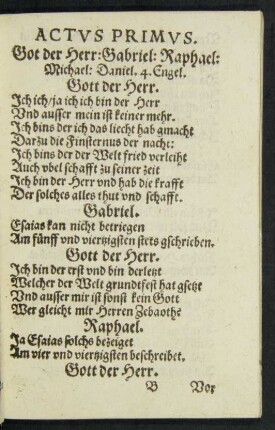 ACTVS PRIMVS.
Got der Herr: Gabriel: Raphael:
Michael: Daniel. 4. Engel.
Gott der Herr.
Ich ich/ ja ich ich bin der Herr
Vnd ausser mein ist keiner mehr.
Ich bins der ich das liecht hab gmacht
Darzu die Finsternus der nacht:
Ich bins der der Welt frid verleiht
Auch vbel schafft zu seiner zeit
Ich bin der Herr vnd hab die krafft
Der solches alles thut vnd schafft.
Gabriel.
Esaias kan nicht betriegen
Am fünff vnd viertzigsten stets gschrieben.
Gott der Herr.
Ich bin der erst vnd bin der letzt
Welcher der Welt grundtfest hat gsetzt
Vnd ausser mir ist sonst kein Gott
Wer gleicht mir Herren Zebaothe
Raphael.
Ja Esaias solchs bezeiget
Am vier vnd viertzigsten beschreibet.
Gott der Herr.
B Vor